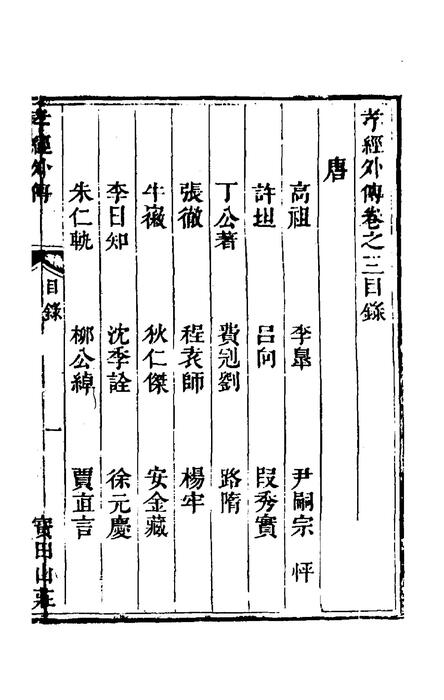 孝經外傳卷之三目錄
唐
高祖 李皐 尹嗣宗 怦
許坦 呂向 段秀實
丁公著 費冠劉 路隋
張徹 程袁師 楊牢
牛徽 狄仁傑 安金藏
李日知 沈季詮 徐元慶
朱仁軌 柳公綽 賈直言
孝經外傳
目錄
一
寶田山莊